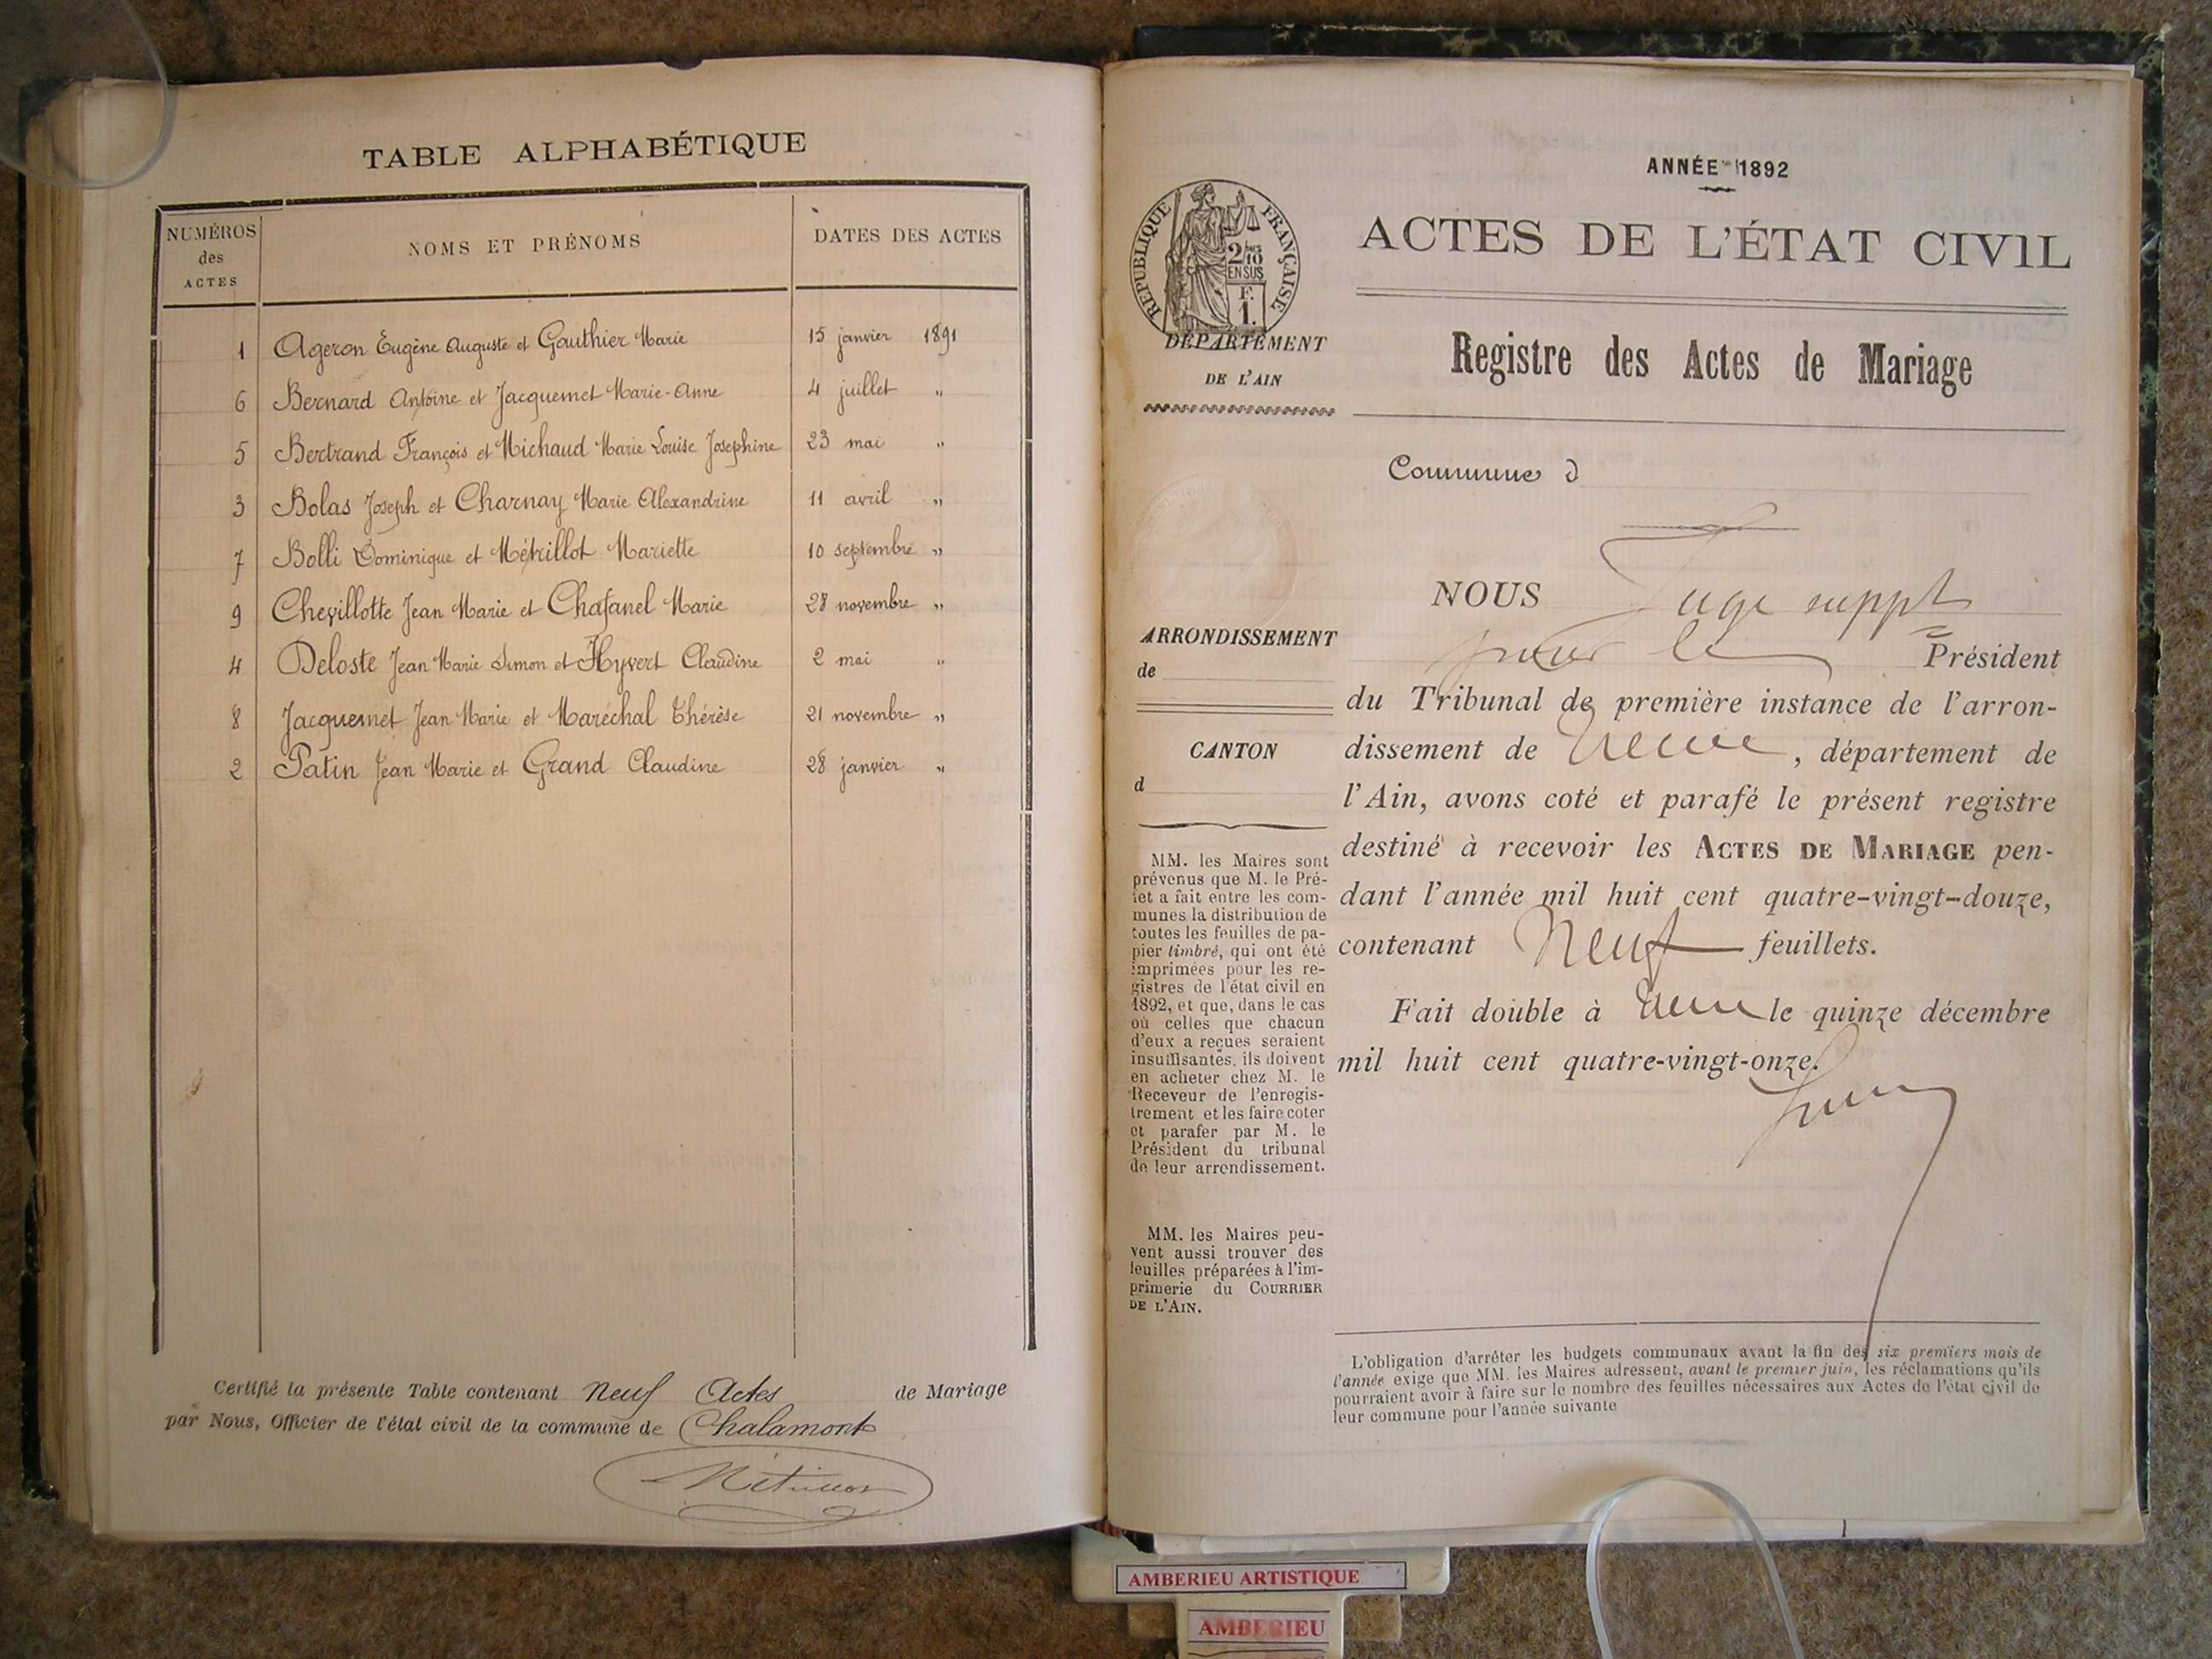 TABLE ALPHABÉTIQUE
NUMÉROS des ACTES
NOMS ET PRÉNOMS
DATES DES ACTES
1 Ageron Eugène Auguste et Gauthier Marie 15 janvier 1891
6 Bernard Antoine et Jacquemet Marie-Anne 4 juillet "
5 Bertrand François et Michaud Marie Louise Josephine 23 mai "
3 Bolas Joseph et Charnay Marie Alexandrine 11 avril "
7 Bolli Dominique et Métrillot Mariette 10 septembre "
9 Chevillotte Jean Marie et Chafanel Marie 28 novembre "
4 Deloste Jean Marie Simon et Hyvert Claudine 2 mai "
8 Jacquemet Jean Marie et Maréchal Thérèse 21 novembre "
2 Patin Jean Marie et Grand Claudine 28 janvier "
Certifié la présente Table contenant Neuf Actes de Mariage
par Nous, Officier de l'état civil de la commune de Chalamont
ANNÉE 1892
RÉPUBLIQUE FRANÇAISE
2/10
EN SUS
F.
1.
ACTES DE L'ÉTAT CIVIL
DÉPARTEMENT
DE L'AIN
Registre des Actes de Mariage
Commune d
ARRONDISSEMENT
de
CANTON
d
MM. les Maires sont
prévenus que M. le Pré-
fet a fait entre les com-
munes la distribution de
toutes les feuilles de pa-
pier timbré, qui ont été
imprimées pour les re-
gistres de l'état civil en
1892, et que, dans le cas
où celles que chacun
d'eux a reçues seraient
insuffisantes, ils doivent
en acheter chez M. le
Receveur de l'enregis-
trement et les faire coter
et parafer par M. le
Président du tribunal
de leur arrondissement.
MM. les Maires peu-
vent aussi trouver des
feuilles préparées à l'im-
primerie du COURRIER
DE L'AIN.
NOUS Juge suppt
pour le Président
du Tribunal de première instance de l'arron-
dissement de Trévoux, département de
l'Ain, avons coté et parafé le présent registre
destiné à recevoir les ACTES DE MARIAGE pen-
dant l'année mil huit cent quatre-vingt-douze,
contenant Neuf feuillets.
Fait double à le quinze décembre
mil huit cent quatre-vingt-onze.
L'obligation d'arrêter les budgets communaux avant la fin des six premiers mois de
l'année exige que MM. les Maires adressent, avant le premier juin, les réclamations qu'ils
pourraient avoir à faire sur le nombre des feuilles nécessaires aux Actes de l'état civil de
leur commune pour l'année suivante
AMBERIEU ARTISTIQUE
AMBERIEU